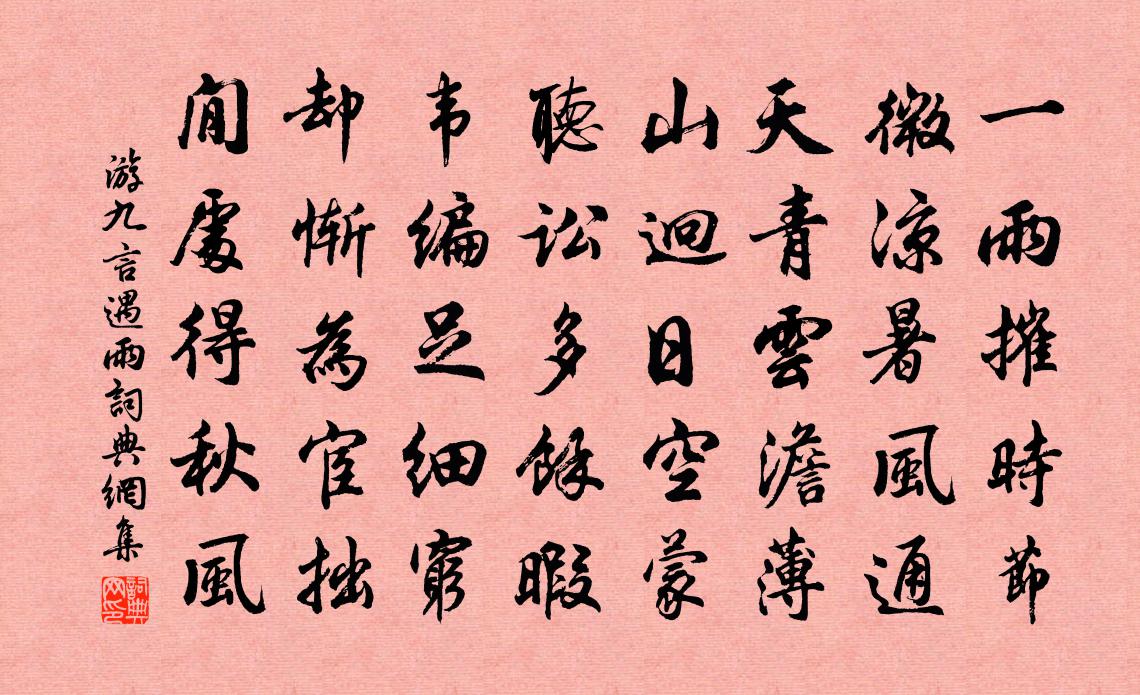 一雨摧時節
微涼暑風通
天青雲澹薄
山迥日空蒙
聽訟多餘暇
韦編足細窮
却慚為宦拙
閒處得秋風
游九言遇雨詞典網集
詞典网印